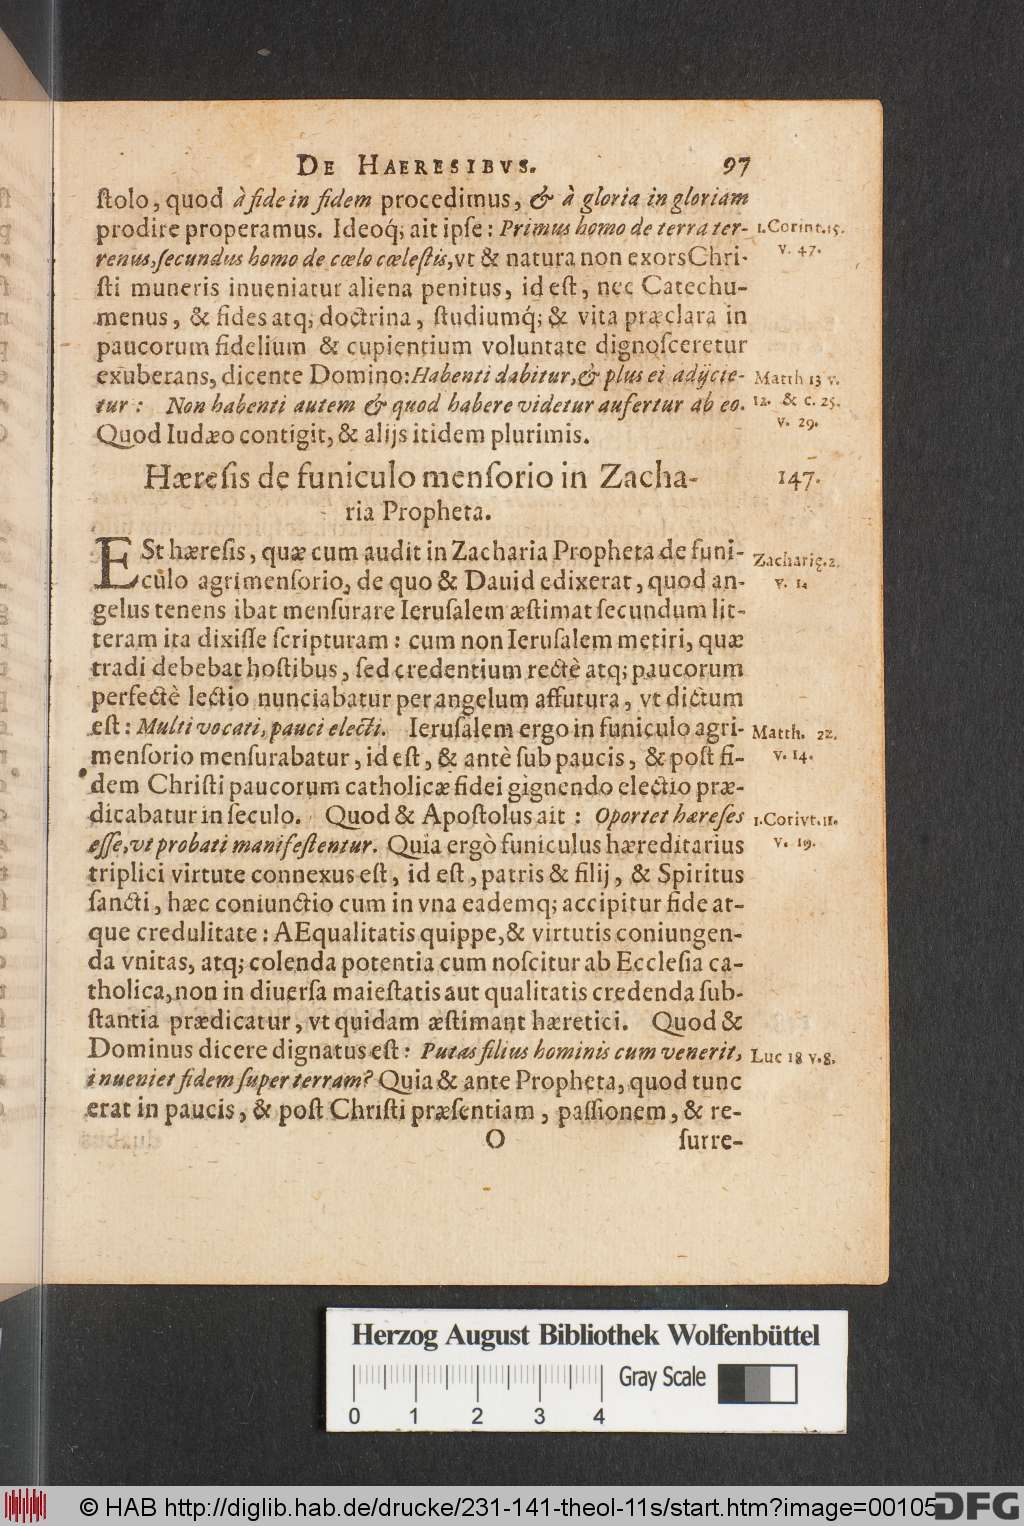 DE HAERESIBVS. 97
ſtolo, quod à fide in fidem procedimus, & à gloria in gloriam
prodire properamus. Ideoq́; ait ipſe: Primus homo de terra ter- 1.Corint.15.
renus, ſecundus homo de cælo cæleſtis, vt & natura non exors Chri- v. 47.
ſti muneris inueniatur aliena penitus, id eſt, nec Catechu-
menus, & fides atq; doctrina, ſtudiumq́; & vita præclara in
paucorum fidelium & cupientium voluntate dignoſceretur
exuberans, dicente Domino: Habenti dabitur, & plus ei adijcie- Matth 13 v.
tur: Non habenti autem & quod habere videtur aufertur ab eo. 12. & c. 25.
v. 29.
Quod Iudæo contigit, & alijs itidem plurimis.
Hæreſis de funiculo menſorio in Zacha- 147.
ria Propheta.
ESt hæreſis, quæ cum audit in Zacharia Propheta de funi- Zacharię.2.
culo agrimenſorio, de quo & Dauid edixerat, quod an- v. 1.
gelus tenens ibat menſurare Ieruſalem æſtimat ſecundum lit-
teram ita dixiſſe ſcripturam: cum non Ieruſalem metiri, quæ
tradi debebat hoſtibus, ſed credentium rectè atq; paucorum
perfectè lectio nunciabatur per angelum affutura, vt dictum
eſt: Multi vocati, pauci electi. Ieruſalem ergo in funiculo agri- Matth. 22.
menſorio menſurabatur, id eſt, & antè ſub paucis, & poſt fi- v. 14.
dem Chriſti paucorum catholicæ fidei gignendo electio præ-
dicabatur in ſeculo. Quod & Apoſtolus ait: Oportet hæreſes 1.Corivt.11.
eſſe, vt probati manifeſtentur. Quia ergò funiculus hæreditarius v. 19.
triplici virtute connexus eſt, id eſt, patris & filij, & Spiritus
ſancti, hæc coniunctio cum in vna eademq; accipitur fide at-
que credulitate: AEqualitatis quippe, & virtutis coniungen-
da vnitas, atq; colenda potentia cum noſcitur ab Eccleſia ca-
tholica, non in diuerſa maieſtatis aut qualitatis credenda ſub-
ſtantia prædicatur, vt quidam æſtimant hæretici. Quod &
Dominus dicere dignatus eſt: Putas filius hominis cum venerit, Luc 18 v.8.
inueniet fidem ſuper terram? Quia & ante Propheta, quod tunc
erat in paucis, & poſt Chriſti præſentiam, paſſionem, & re-
O ſurre-
Herzog August Bibliothek Wolfenbüttel
Gray Scale
0 1 2 3 4
© HAB http://diglib.hab.de/drucke/231-141-theol-11s/start.htm?image=00105
DFG